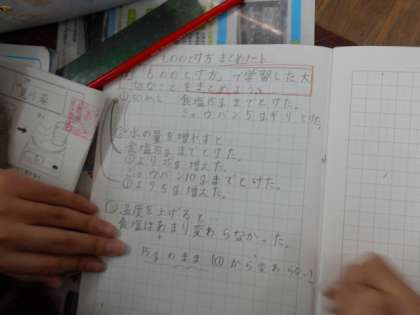 もののとけ方 まとめノート
「もののとけ方」で学習した大
切なことをまとめよう。
食塩15gまでとけた。
ミョウバン5gギリとけた
②水の量を増やすと
食塩 までとけた。
①より 増えた。
ミョウバン10gまでとけた。
①より5g増えた。
③温度を上げると
食塩はあまり変わらなかった。
15gのまま(①)から変わらない